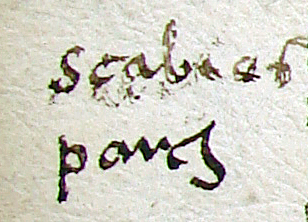 scabies
pang